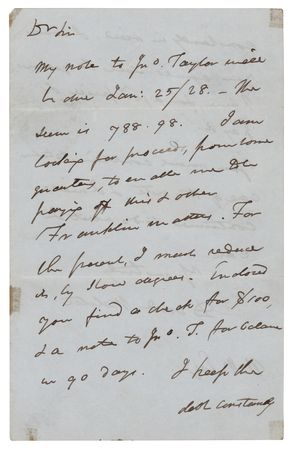 Dr Sir
My note to Jno. Taylor will
be due Jan: 25/28. - The
sum is 788.98. I am
looking for proceeds, from some
quarters, to enable me to
paying off this & other
Franklin matters. For
the present, I must reduce
it, by slow degrees. Inclosed
you find a check for $100,
& a note to Jno. T. for balance
in 90 days. I keep the
debt constantly